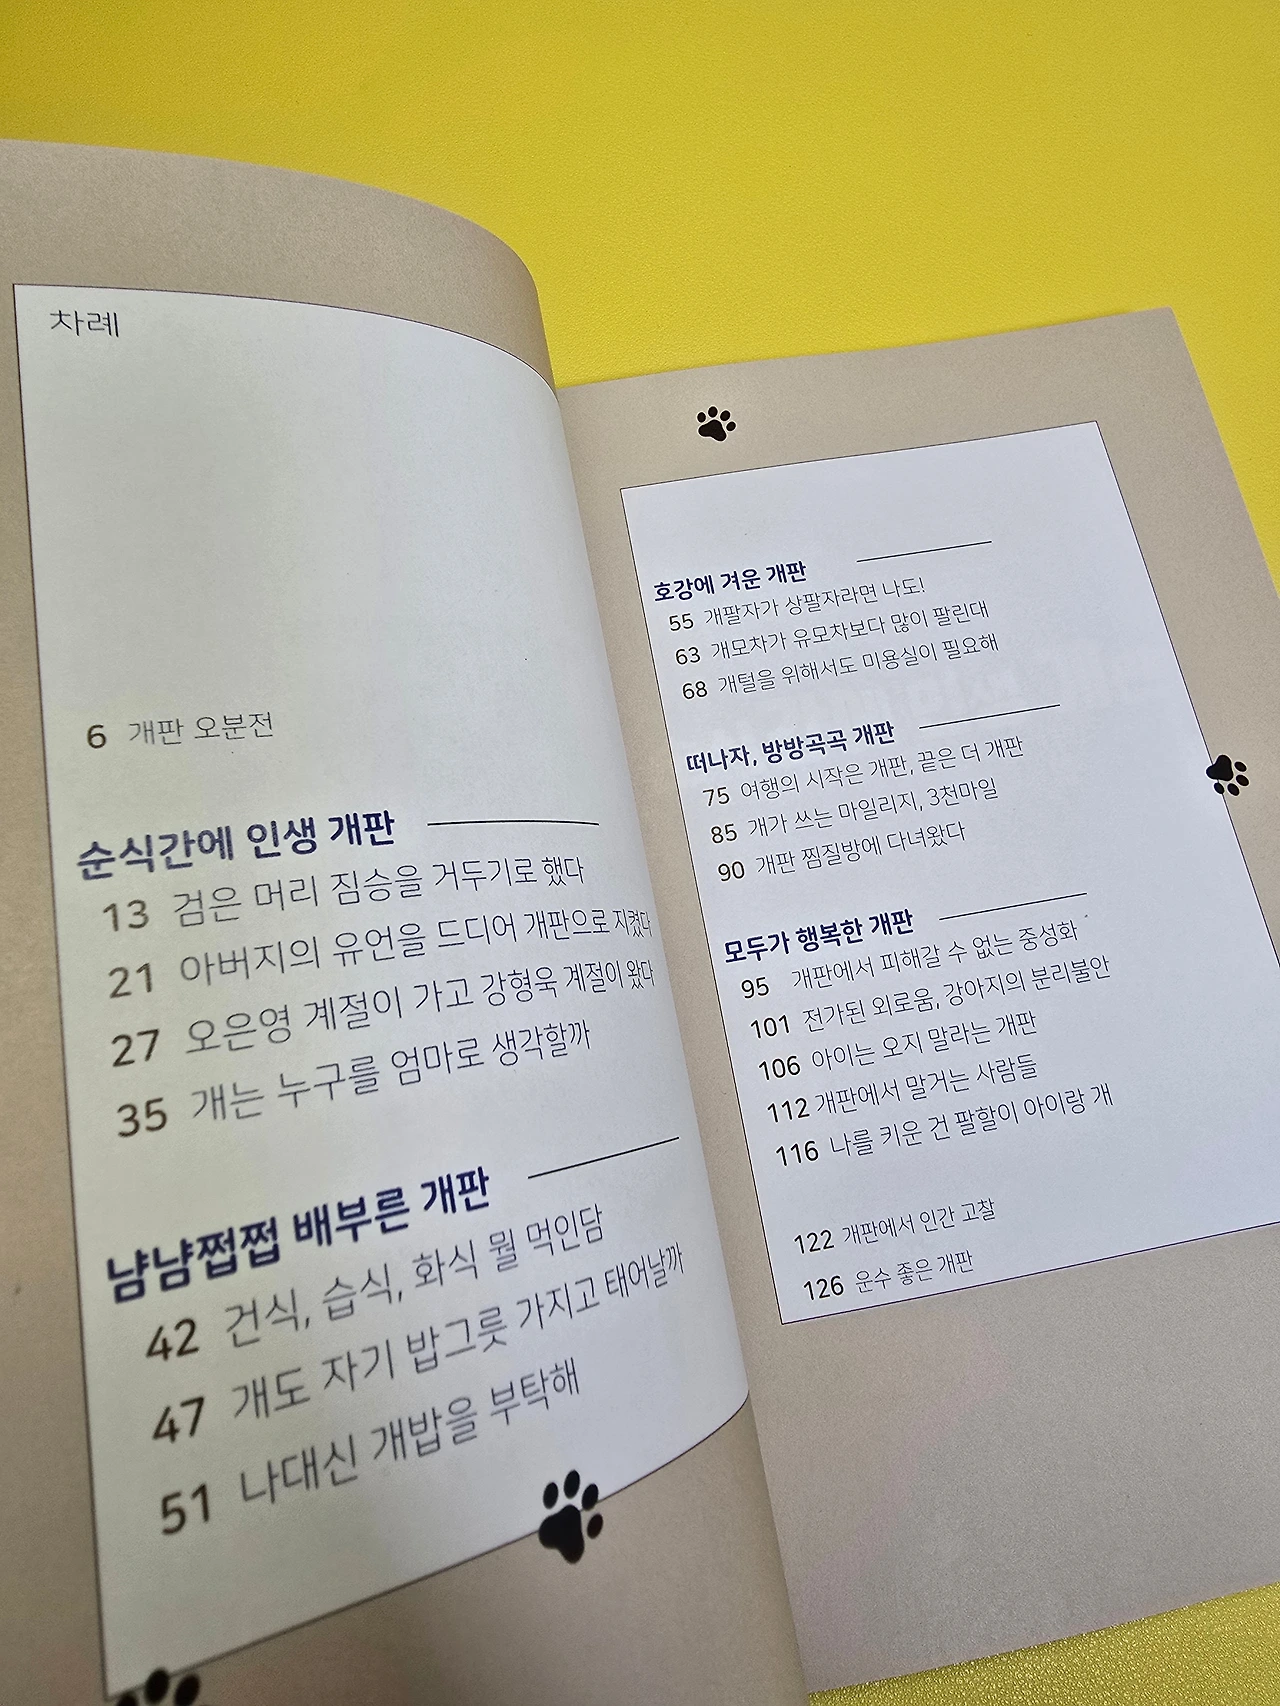 차례
6 개판 오분전
순식간에 인생 개판
13 검은 머리 짐승을 거두기로 했다
21 아버지의 유언을 드디어 개판으로 지켰다
27 오은영 계절이 가고 강형욱 계절이 왔다
35 개는 누구를 엄마로 생각할까
냠냠쩝쩝 배부른 개판
42 건식, 습식, 화식 뭘 먹인담
47 개도 자기 밥그릇 가지고 태어날까
51 나대신 개밥을 부탁해
호강에 겨운 개판
55 개팔자가 상팔자라면 나도!
63 개모차가 유모차보다 많이 팔린대
68 개털을 위해서도 미용실이 필요해
떠나자, 방방곡곡 개판
75 여행의 시작은 개판, 끝은 더 개판
85 개가 쓰는 마일리지, 3천마일
90 개판 찜질방에 다녀왔다
모두가 행복한 개판
95 개판에서 피해갈 수 없는 중성화
101 전가된 외로움, 강아지의 분리불안
106 아이는 오지 말라는 개판
112 개판에서 말거는 사람들
116 나를 키운 건 팔할이 아이랑 개
122 개판에서 인간 고찰
126 운수 좋은 개판